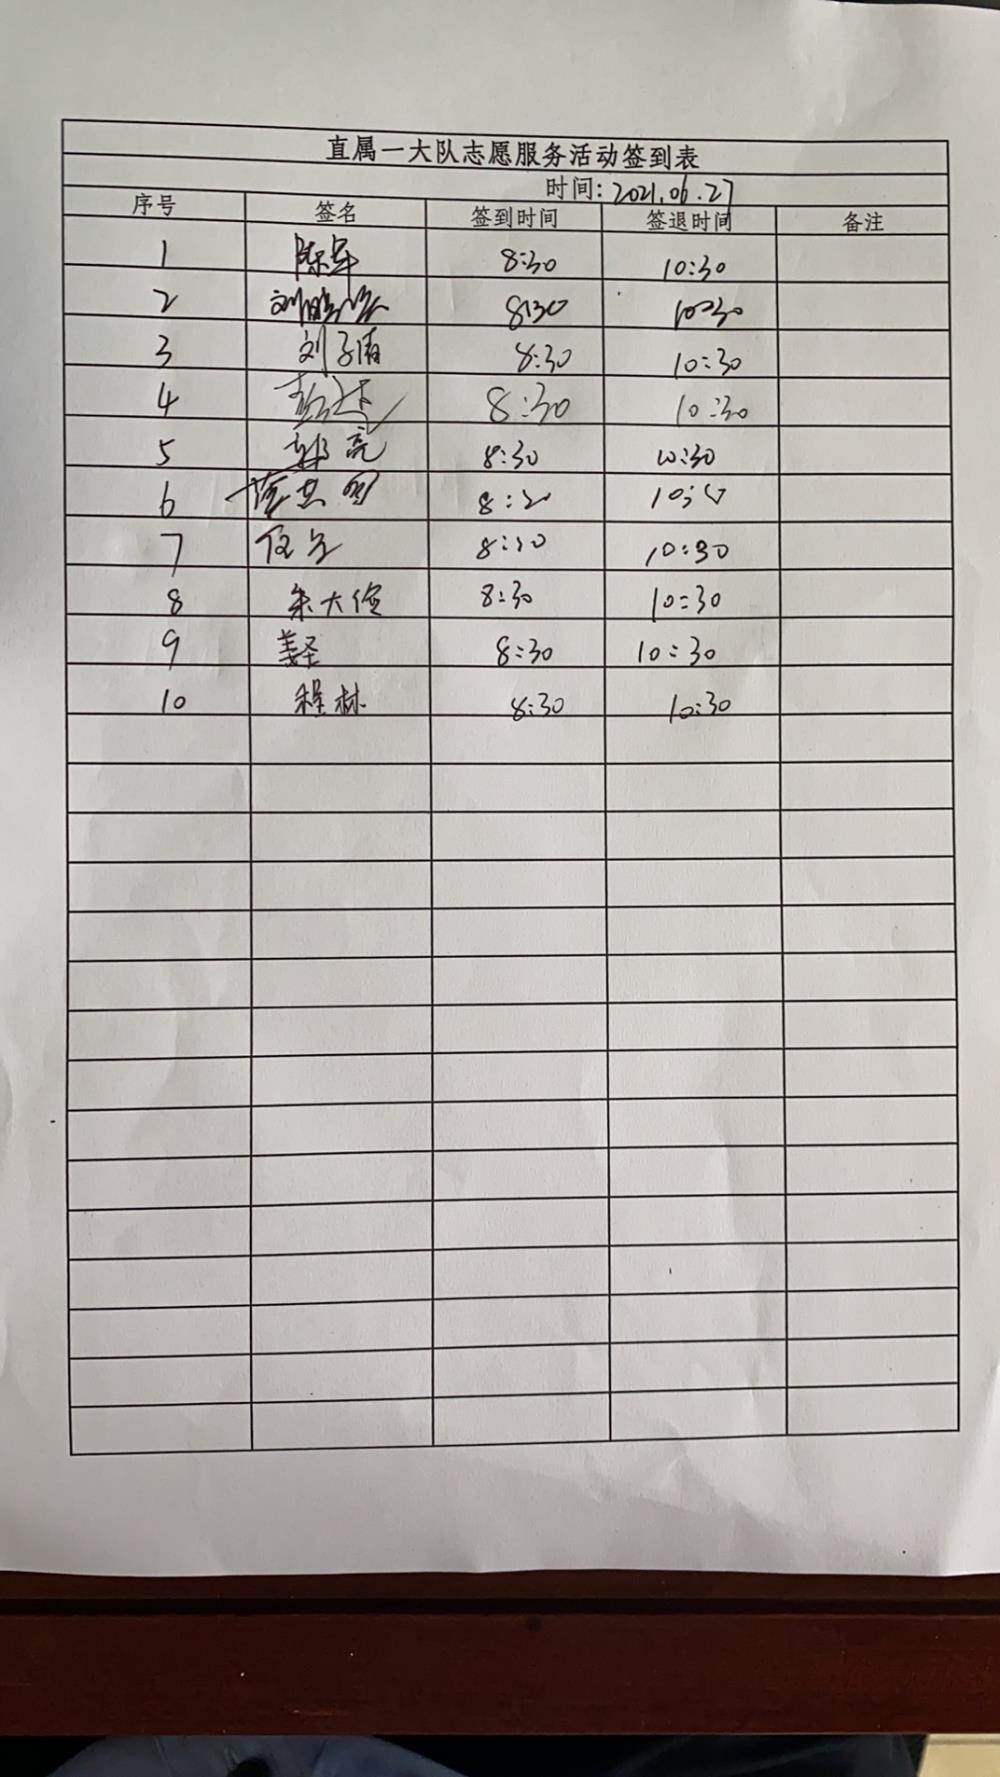 直属一大队志愿服务活动签到表
时间: 2021.06.27
序号 签名 签到时间 签退时间 备注
1 陈军 8:30 10:30
2 刘 8:30 10:30
3 刘子 8:30 10:30
4 彭达 8:30 10:30
5 郭亮 8:30 10:30
6 8:30
7 8:30 10:30
8 朱大俊 8:30 10:30
9 姜圣 8:30 10:30
10 程林 8:30 10:30